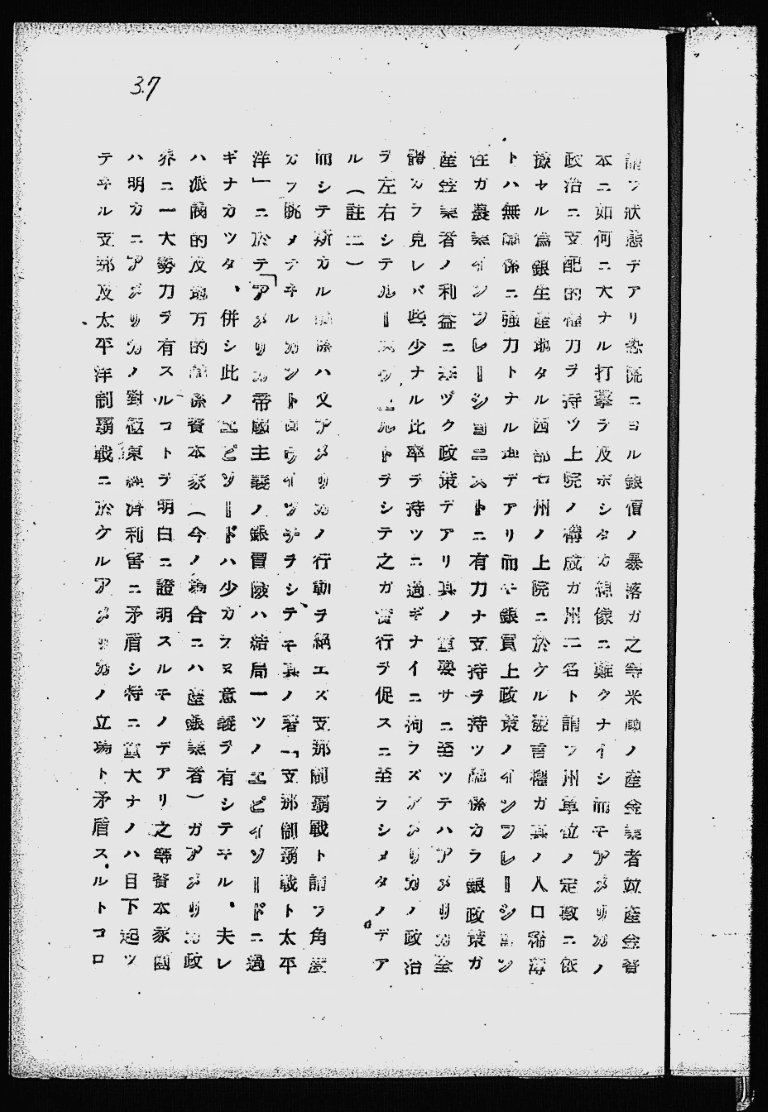 37
謂フ状態デアリ熱流ニヨル銀価ノ暴落ガ之等米國ノ産金業者竝産金資
本ニ如何ニ大ナル打撃ヲ及ボシタカ想像ニ難クナイシ而モアメリカノ
政治ニ支配的權力ヲ持ツ上院ノ構成ガ州二名ト謂フ州單位ノ定数ニ依
據セル爲銀生産地タル西部七州ノ上院ニ於ケル發言權ガ其ノ人口稀薄
トハ無關係ニ強力トナル

デアリ而モ銀買上政策ノインフレーション
性ガ農業インフレーショニストニ有力ナ支持ヲ持ツ關係カラ銀政策ガ
産金業者ノ利益ニ基ヅク政策デアリ其ノ重要サニ至ツテハアメリカ全
體カラ見レバ些少ナル比率ヲ持ツニ過ギナイニ拘ラズアメリカノ政治
ヲ左右シテルーズヴェルトヲシテ之ガ實行ヲ促スニ至ラシメタノデア
ル（註二）
而シテ斯カル關係ハ又アメリカノ行動ヲ絶エズ支那制覇戰ト謂フ角度
カラ眺メテヰルカントロウイッチヲシテモ其ノ著「支那制覇戰ト太平
洋」ニ於テ「アメリカ帝國主義ノ銀冒險ハ結局一ツノエピソードニ過
ギナカツタ、併シ此ノエピソードハ少カラヌ意義ヲ有シテヰル、夫レ
ハ派閥的及地方的關係資本家（今ノ場合ニハ産銀業者）ガアメリカ政
界ニ一大勢力ヲ有スルコトヲ明白ニ證明スルモノデアリ之等資本家團
ハ明カニアメリカノ對極東經濟利害ニ矛盾シ特ニ重大ナノハ目下起ツ
テヰル支那及太平洋制覇戰ニ於ケルアメリカノ立場ト矛盾スルトコロ